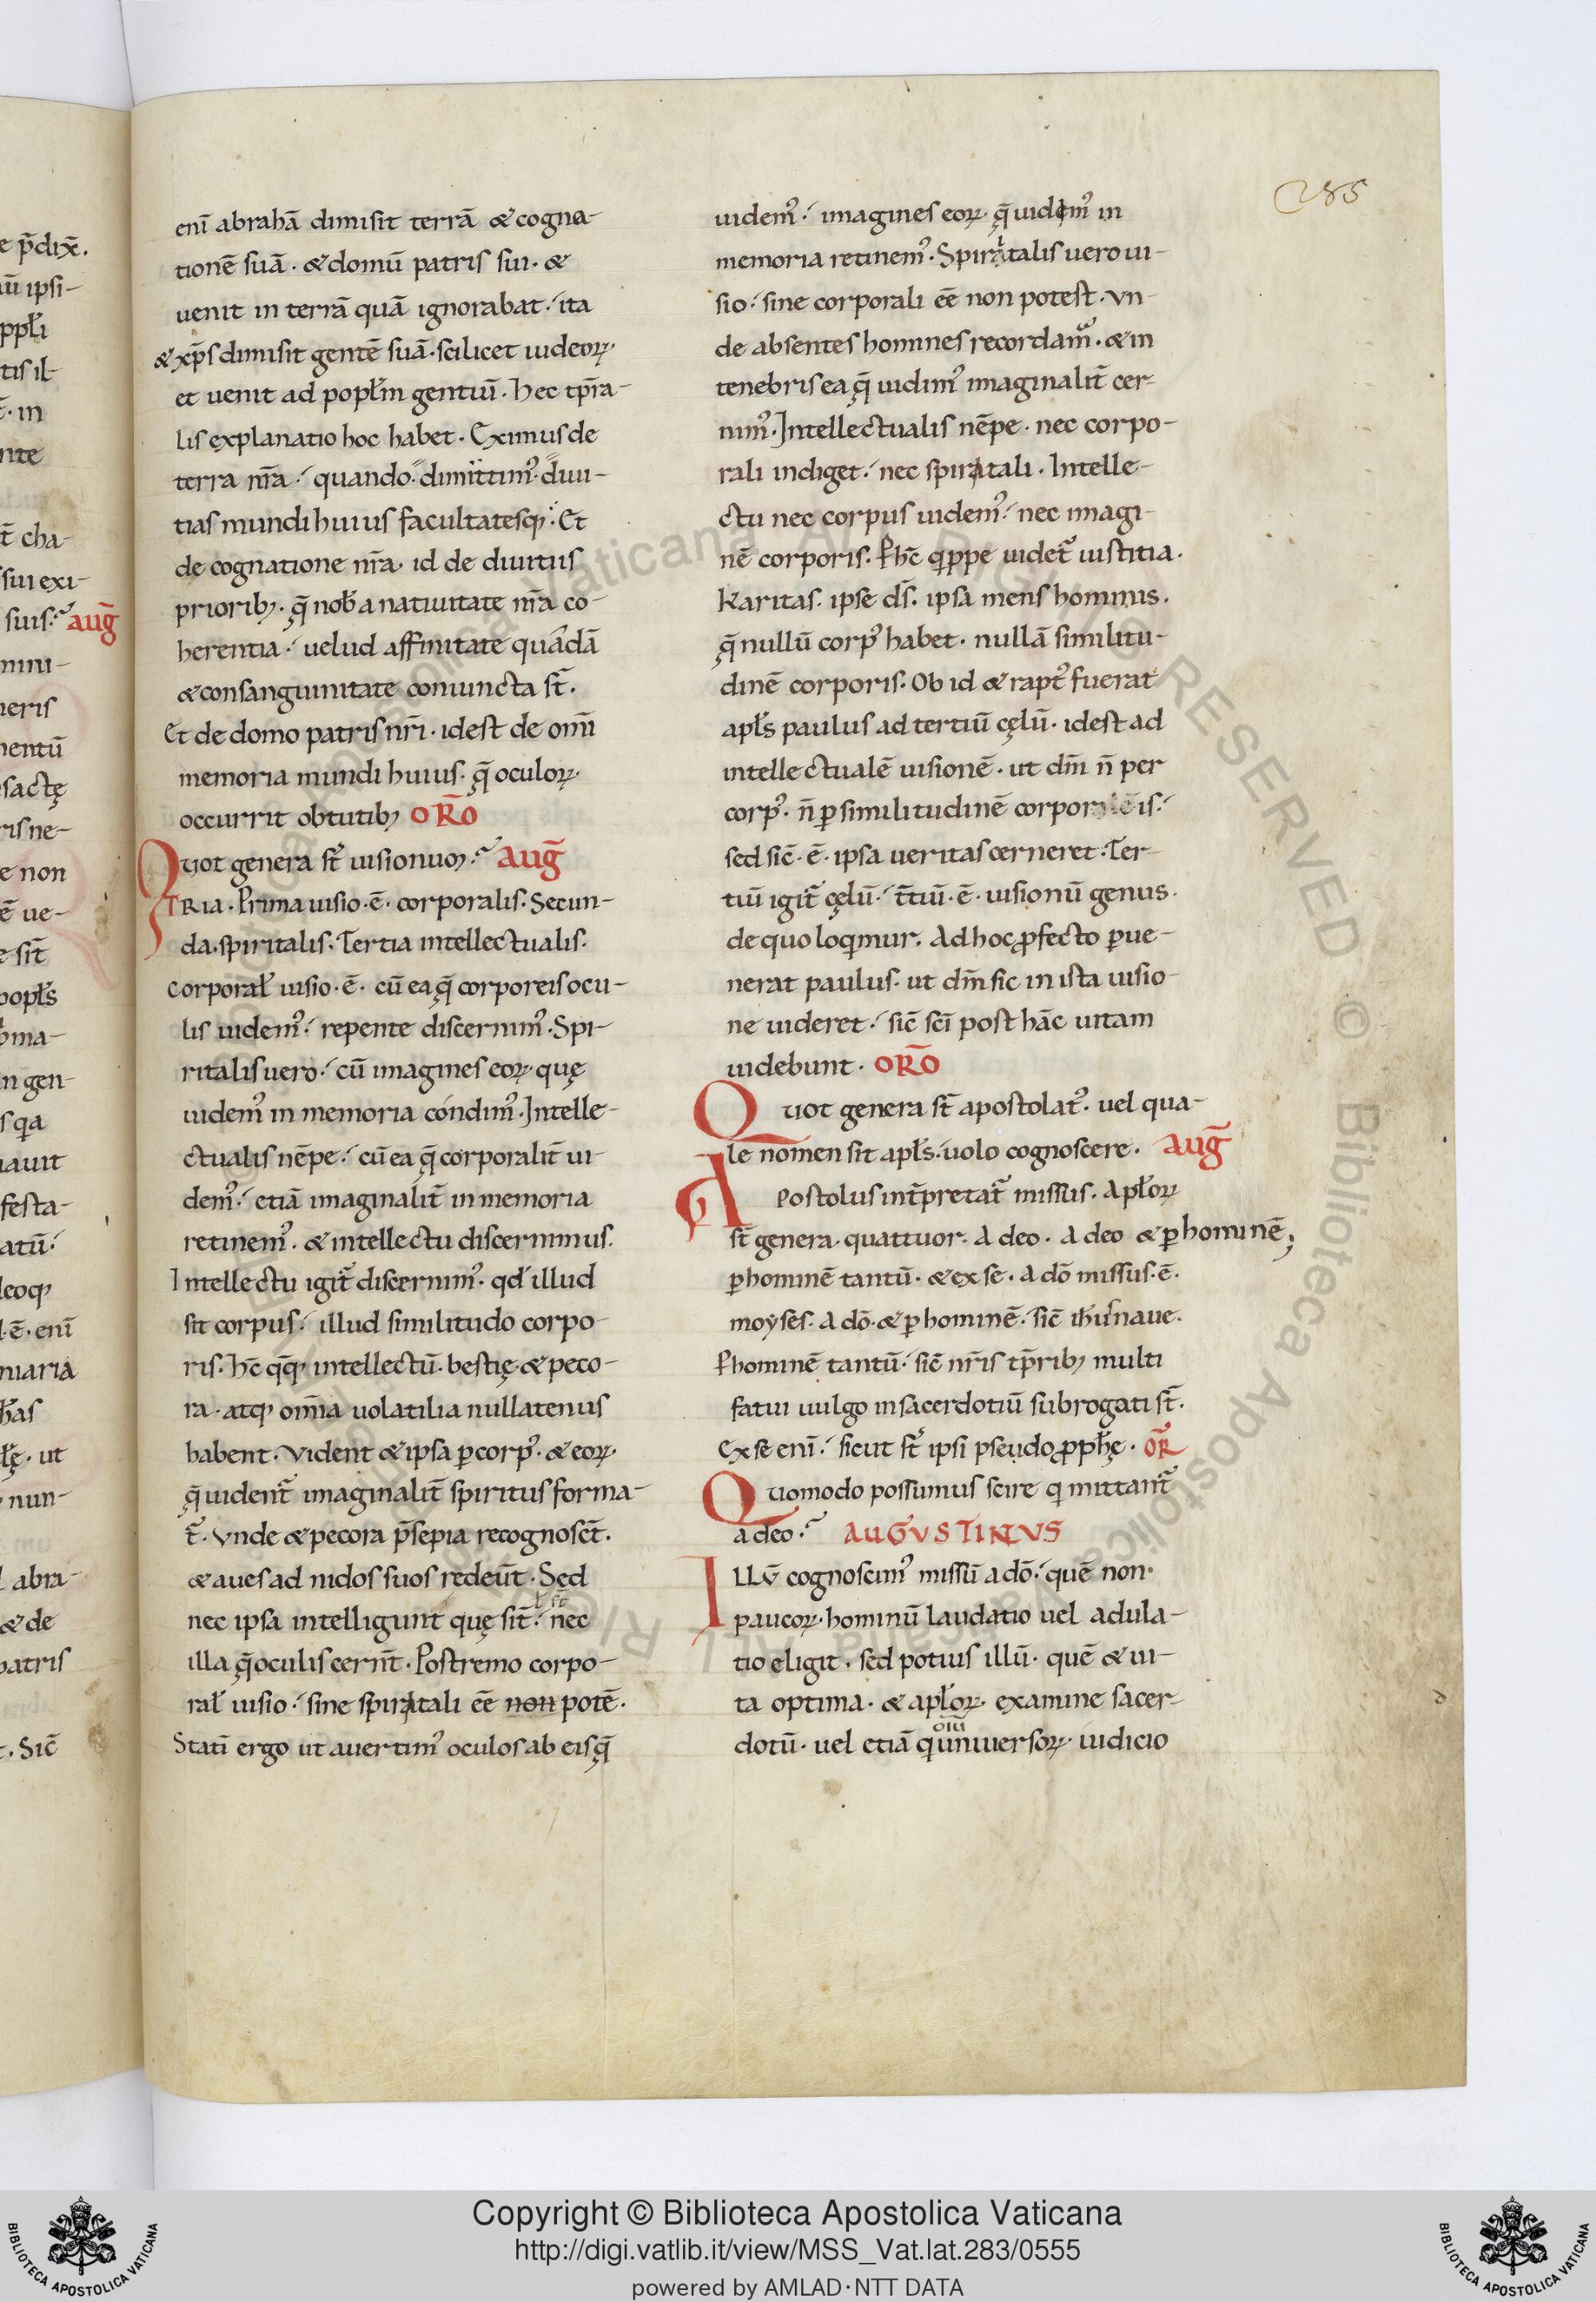 enī abrahā dimisit terrā & cogna-
tionē suā. & domū patris sui. &
uenit in terrā quā ignorabat. ita
& xp̄s dimisit gentē suā. scilicet iudeoꝝ.
et uenit ad popl̄m gentiū. Hec tp̄ra-
lis explanatio hoc habet. Eximus de
terra nr̄a. quando dimittim᾽ diui-
tias mundi huius facultatesq;. Et
de cognatione nr̄a. id de diuitiis
priorib;. q̨̄ nob̄ a natiuitate nr̄a co-
herentia. uelud affinitate quādā
& consanguinitate coniuncta st̄.
Et de domo patris nr̄i. idest de om̄i
memoria mundi huius. q̨̄ oculoꝝ.
occurrit obtutib; ORO̅
Quot genera st̄ uisionuꝫ. AUḠ
TRIA. Prima uisio. ē. corporalis. Secun-
da. spiritalis. Tertia intellectualis.
corporal̄ uisio. ē. cū ea q̨̄ corporeis ocu-
lis uidem᾽. repente discernim᾽. Spi-
ritalis uero. cū imagines eoꝝ. quę
uidem᾽ in memoria condim᾽. Intelle-
ctualis nēpe. cū ea q̨̄ corporalit̄ ui-
dem᾽. etiā imaginalit̄ in memoria
retinem᾽. & intellectu discernimus.
Intellectu igit̄ discernim᾽. qd̄ illud
sit corpus. illud similitudo corpo-
ris. Hc̄ qq; intellectū. bestię. & peco-
ra. atq; om̄ia uolatilia nullatenus
habent. Vident & ipsa ꝑ corp᾽. & eoꝝ.
q̨̄ uident̄ imaginalit̄ spiritus forma-
t̄. Vnde & pecora p̄sepia recognosct̄.
& aues ad nidos suos redeūt. Sed
nec ipsa intelligunt quę sit̄. ł st̄ nec
illa q̨̄ oculis cernt̄. Postremo corpo-
ral̄ uisio. sine spiritali eē non potē.
Statī ergo ut auertim᾽ oculos ab eis q̨̄
285
uidem᾽. imagines eoꝝ. q̨̄ uidem᾽ in
memoria retinem᾽. Spiritalis uero ui-
sio. sine corporali eē non potest. Vn-
de absentes homines recordam᾽. & in
tenebris ea q̨̄ uidim᾽ imaginalit̄ cer-
nim᾽. Intellectualis nēpe. nec corpo-
rali indiget. nec spiritali. Intelle-
ctu nec corpus uidem᾽. nec imagi-
nē corporis. Ꝑ hc̄ qippe uidet̄ iustitia.
Karitas. ipse ds̄. ipsa mens hominis.
q̨̄ nullū corp᾽ habet. nullā similitu-
dinē corporis. Ob id & rapt᾽ fuerat
apl̄s paulus ad tertiū cęlū. idest ad
intellectualē uisionē. ut dm̄ n̄ per
corp᾽. n̄ ꝑ similitudinē corporis.
sed sic̄. ē. ipsa ueritas cerneret. Ter-
tiū igit̄ cęlū. t̄tiū. ē. uisionū genus.
de quo loqimur. Ad hoc ꝓfecto ꝑue-
nerat paulus. ut dm̄ sic in ista uisio-
ne uideret. sic̄ sc̄i post hāc uitam
uidebunt. ORO̅
Quot genera st̄ apostolat᾽. uel qua-
le nomen sit apl̄s. uolo cognoscere. AUḠ
Apostolus int̄pretat̄ missus. Apl̄oꝝ
st̄ genera. quattuor. A deo. A deo & ꝑ hominē;
ꝑ hominē tantū. & ex se. A dō missus. ē.
moyses. A dō. & ꝑ hominē. sic̄ ih̄u naue.
Ꝑ hominē tantū. sic̄ nr̄is tp̄rib; multi
fatui uulgo in sacerdotiū subrogati st̄.
Ex se enī. sicut st̄ ipsi pseudo ꝓpħę. OR̄
Quomodo possumus scire qi mittant̄
a deo. AUGVSTINVS
ILLV̄ cognoscim᾽ missū a dō. quē non.
paucoꝝ. hominū laudatio uel adula-
tio eligit. sed potius illū. quē & ui-
ta optima. & apl̄oꝝ. examine sacer-
dotū. uel etiā qi oīū uniuersoꝝ. iudicio
Copyright © Biblioteca Apostolica Vaticana
http://digi.vatlib.it/view/MSS_Vat.lat.283/0555
powered by AMLAD·NTT DATA